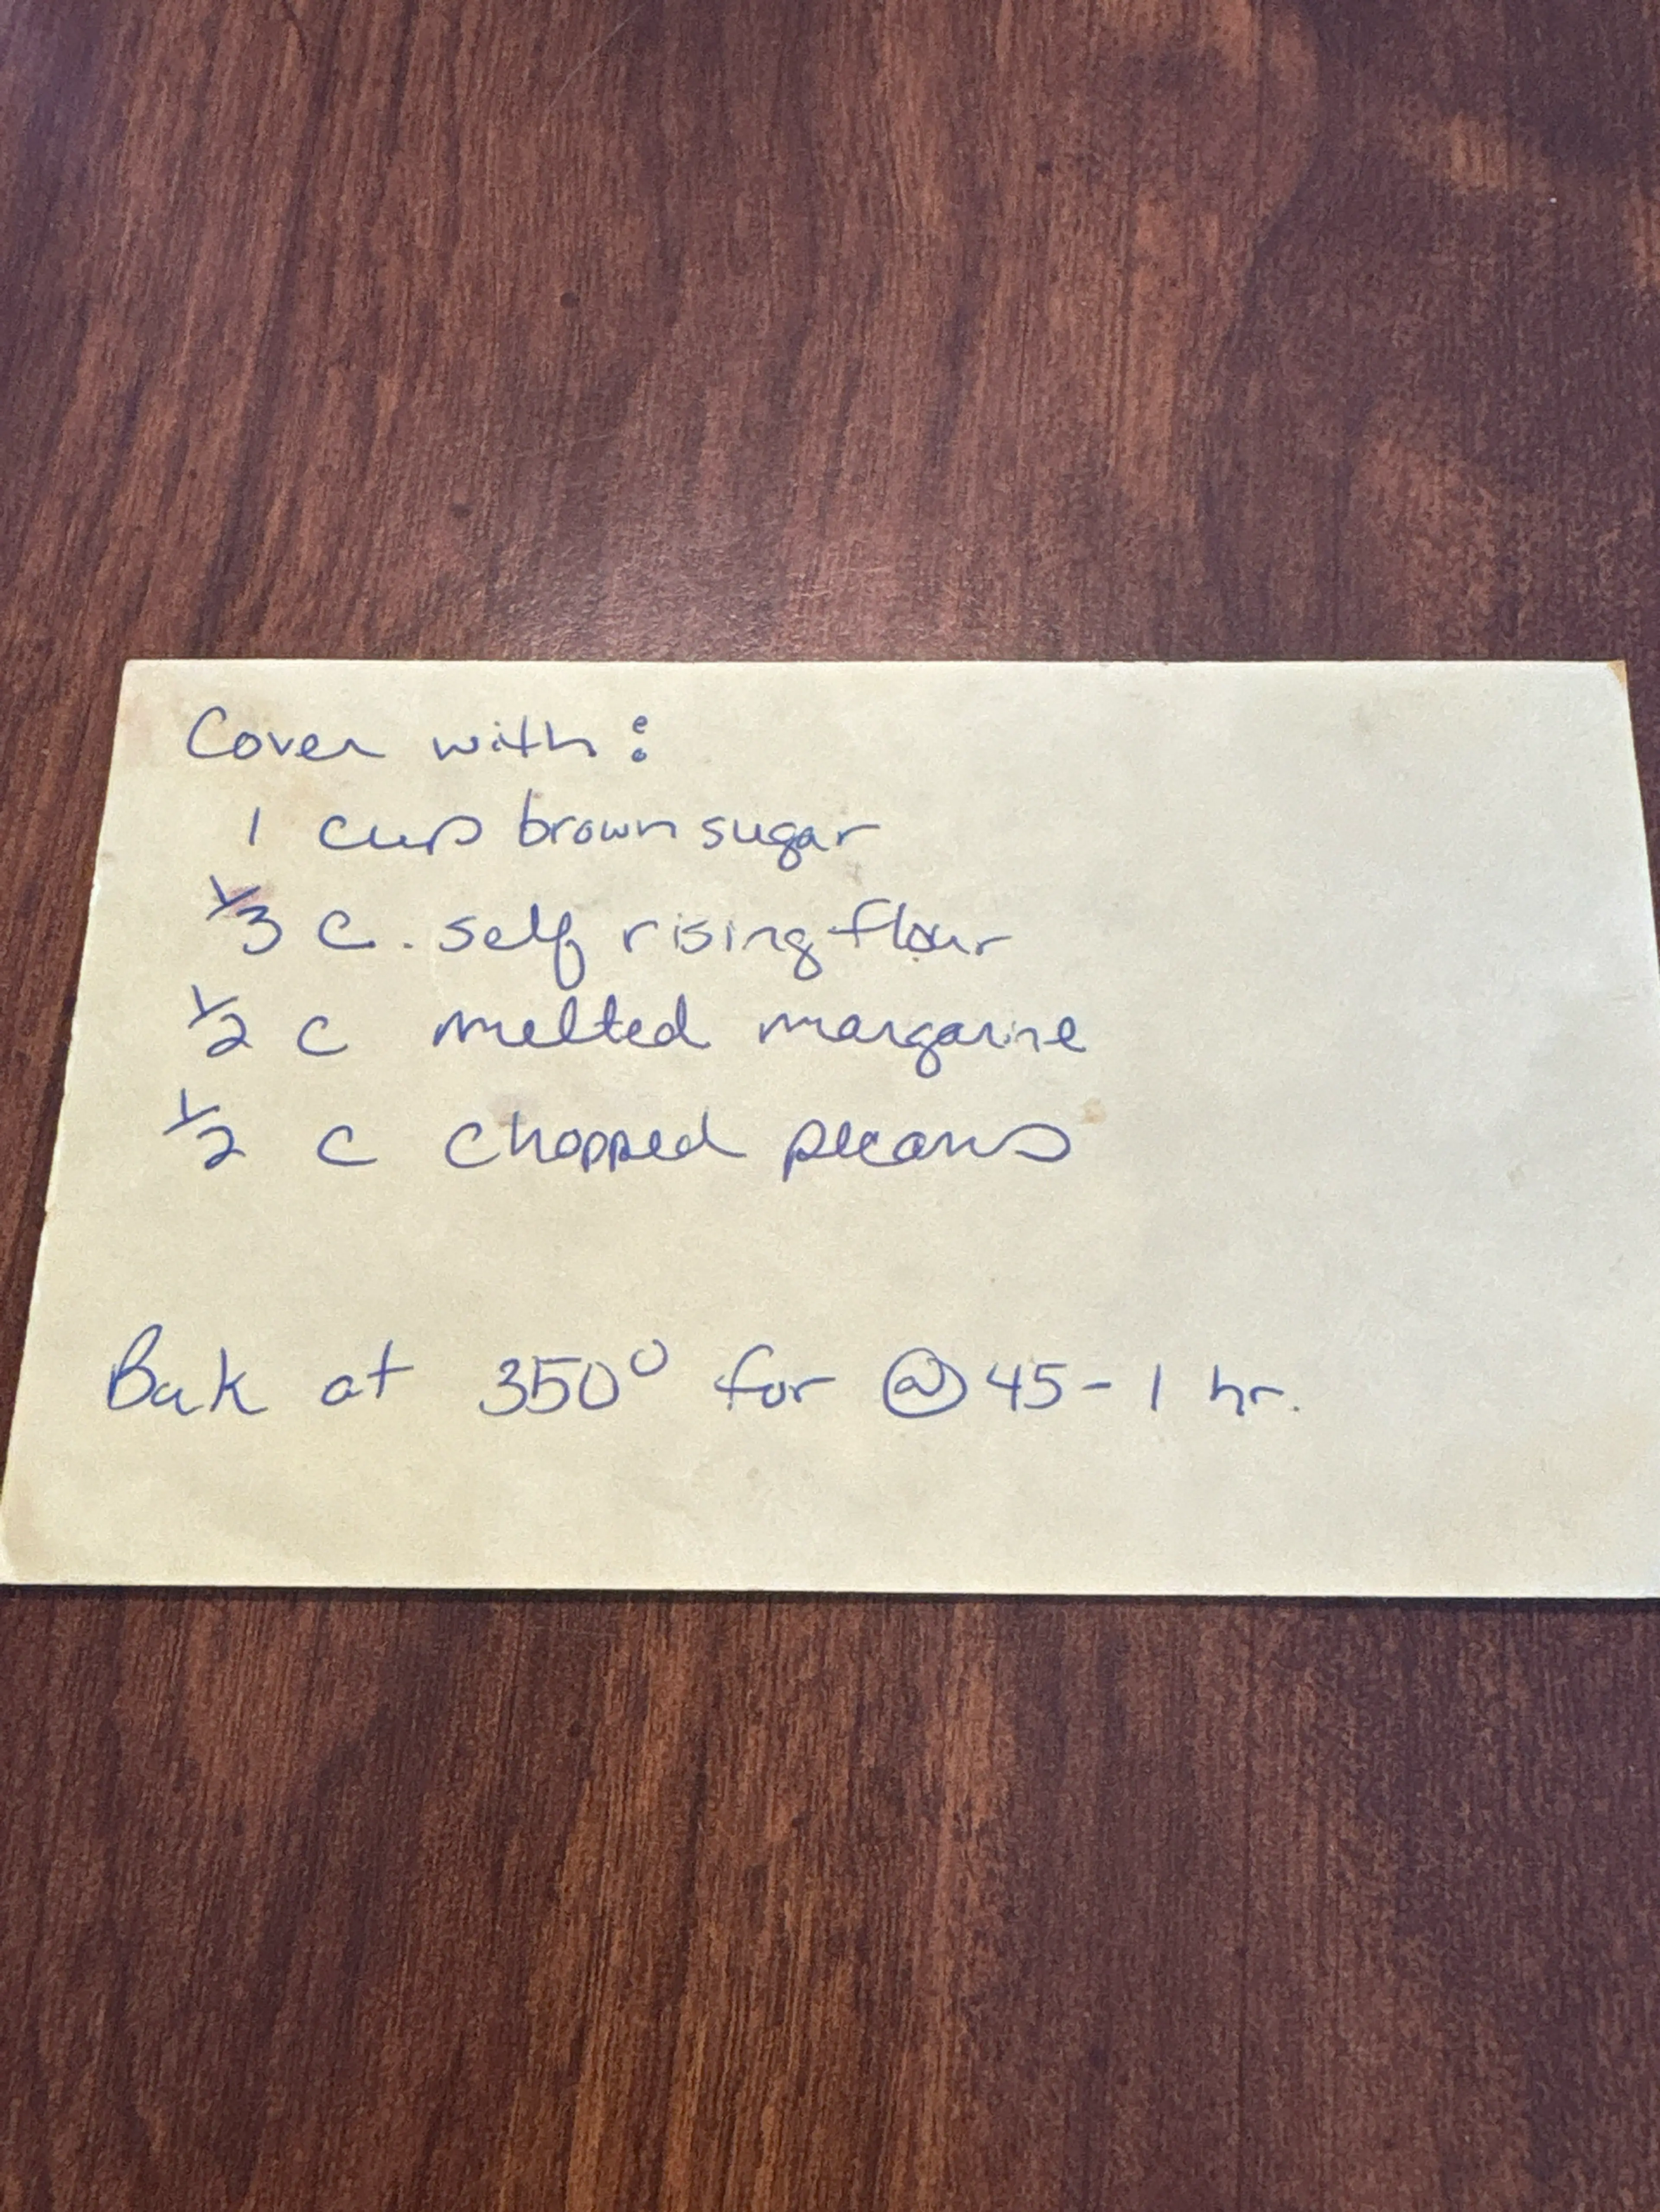 Cover with:
1 cup brown sugar
1/3 c. self rising flour
1/2 c melted margarine
1/2 c chopped pecans
Bak at 350° for @ 45-1 hr.